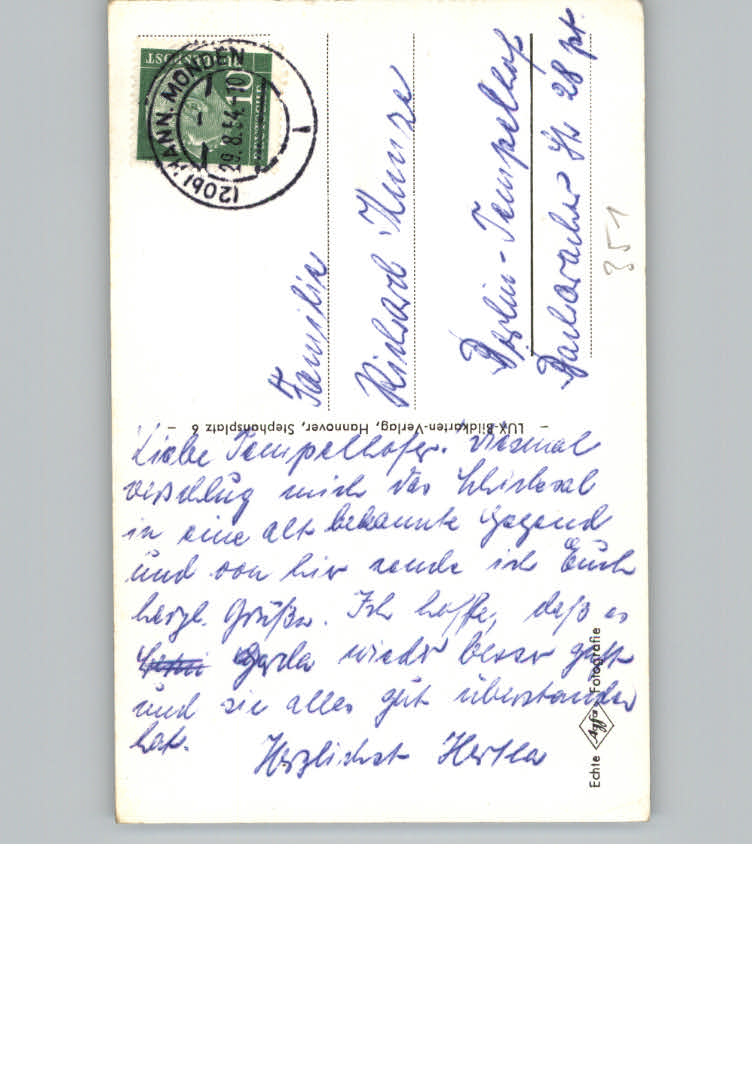 Liebe Tempelhofer. Diesmal
verschlug mich das Schicksal
in eine alt bekannte Gegend
und von hier sende ich Euch
herzl. Grüße. Ich hoffe, daß es
Gerda wieder besser geht
und sie alles gut überstanden
hat. Herzlichst Hertha
Familie
Richard Kunze
Berlin-Tempelhof
Bacharacher Str 28 pt.
(20b) HANN. MÜNDEN
29.8.54.-10
DEUTSCHE
BUNDESPOST
10
- LUX-Bildkarten-Verlag, Hannover, Stephansplatz 6 -
Echte Agfa Fotografie
351